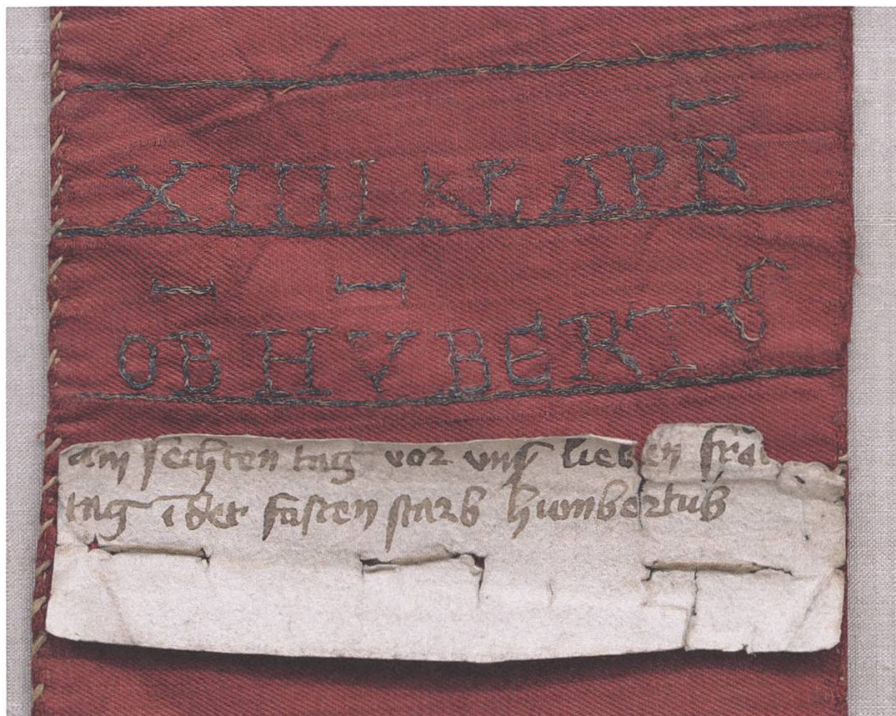 XIIII KL APR̄
OB̄ HV̄BERTS
am sechten tag vor vnß lieben fra
tag ī der fasten starb humbertus